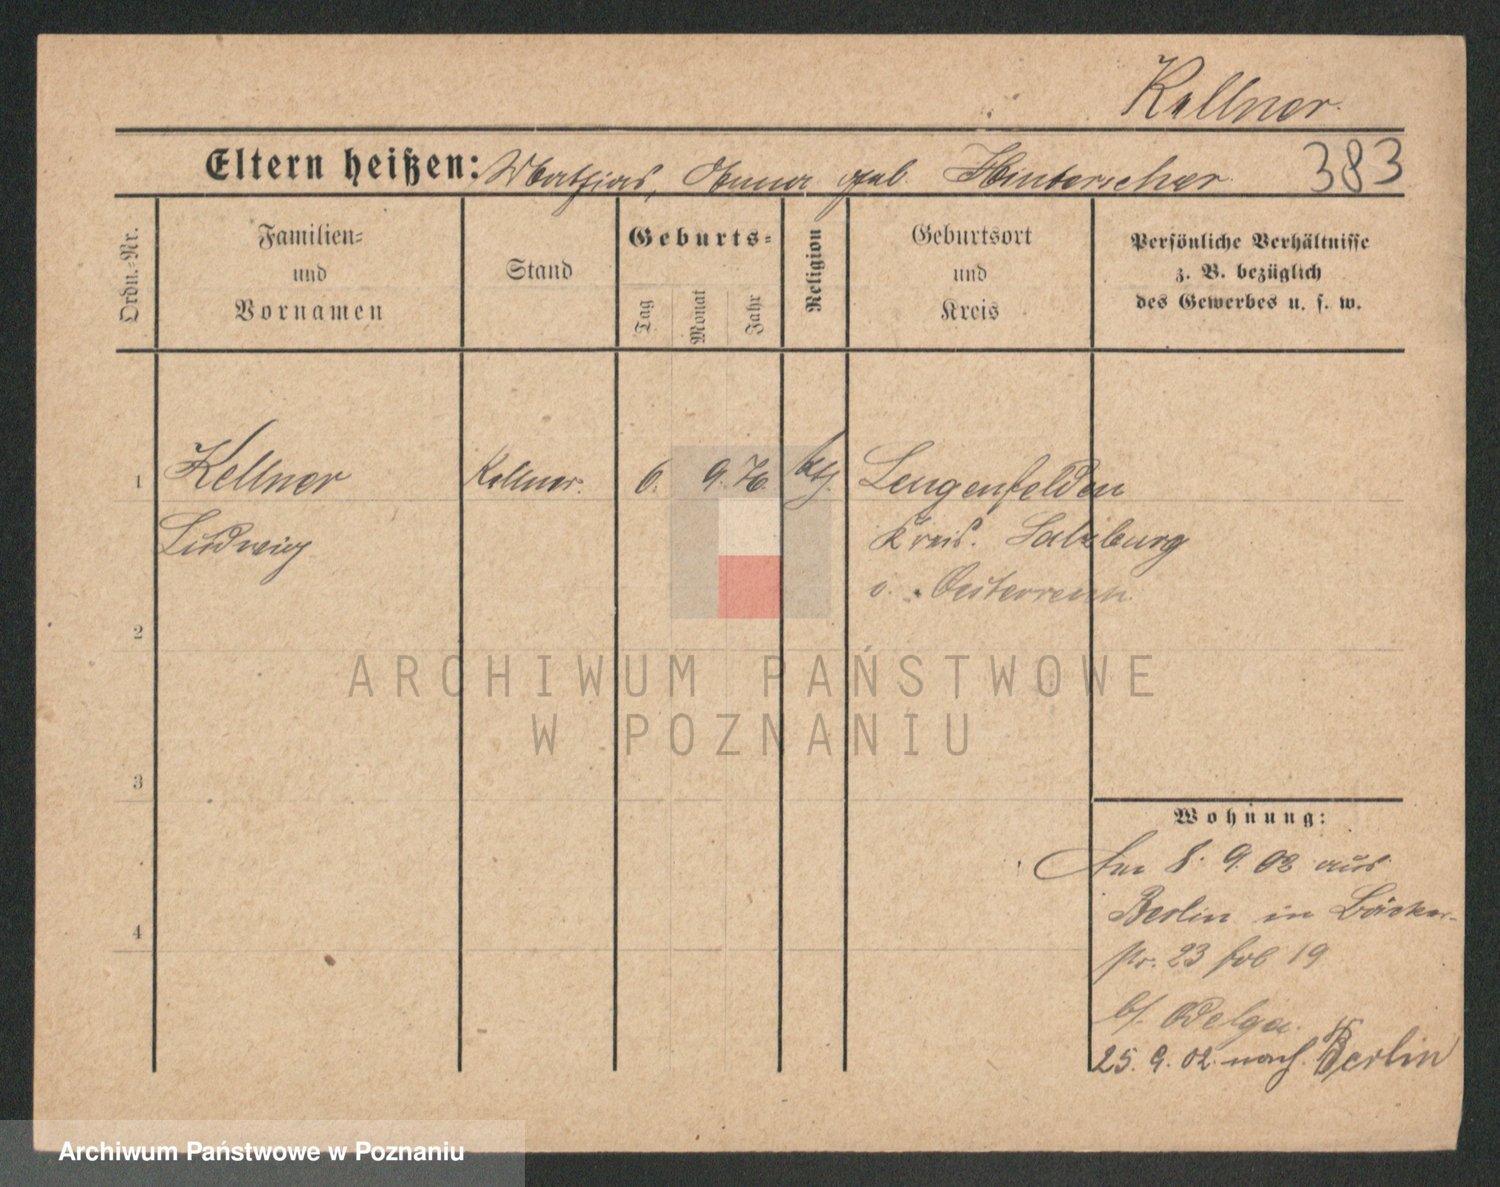 Kellner.
Eltern heißen: Mathias, Anna geb. Hinterscher
383
Ordn.-Nr.
Familien-
und
Vornamen
Stand
Geburts-
Tag
Monat
Jahr
Religion
Geburtsort
und
Kreis
Persönliche Verhältnisse
z. B. bezüglich
des Gewerbes u. s. w.
1
Kellner
Kellner.
6. 9. 76.
kth.
Lengenfelden
Ludwig
Kreis. Salzburg
i. Oesterreich.
2
ARCHIWUM PAŃSTWOWE
W POZNANIU
3
Wohnung:
Am 8. 9. 02 aus
Berlin in Bäcker-
4
str. 23 19
b/. Odelga.
25. 9. 02. nach Berlin
Archiwum Państwowe w Poznaniu